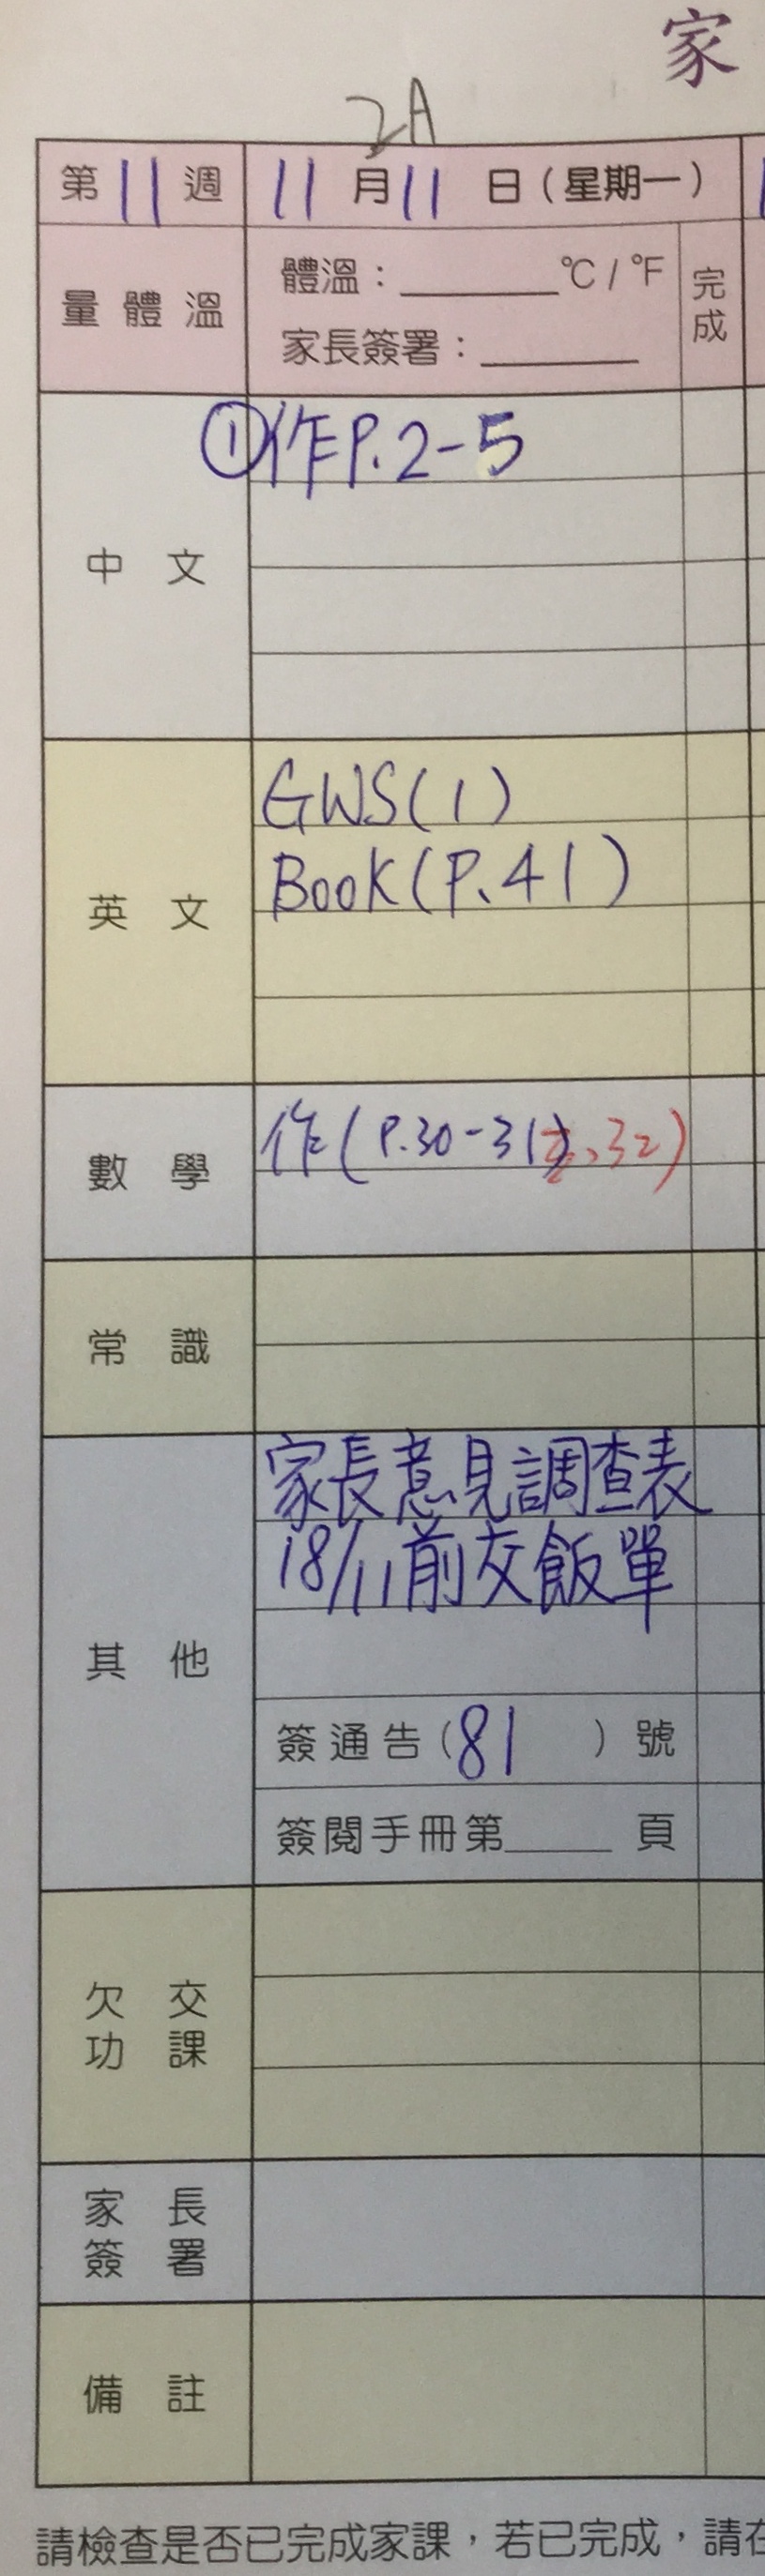 家
2A
第11週 11月11日(星期一)
量體溫 體溫:______°C/°F 完成
家長簽署:______
中文 ①作P.2-5
英文 GWS(1)
Book(P.41)
數學 作(P.30-31、32)
常識
其他 家長意見調查表
18/11前交飯單
簽通告(81)號
簽閱手冊第____頁
欠交功課
家長簽署
備註
請檢查是否已完成家課,若已完成,請在